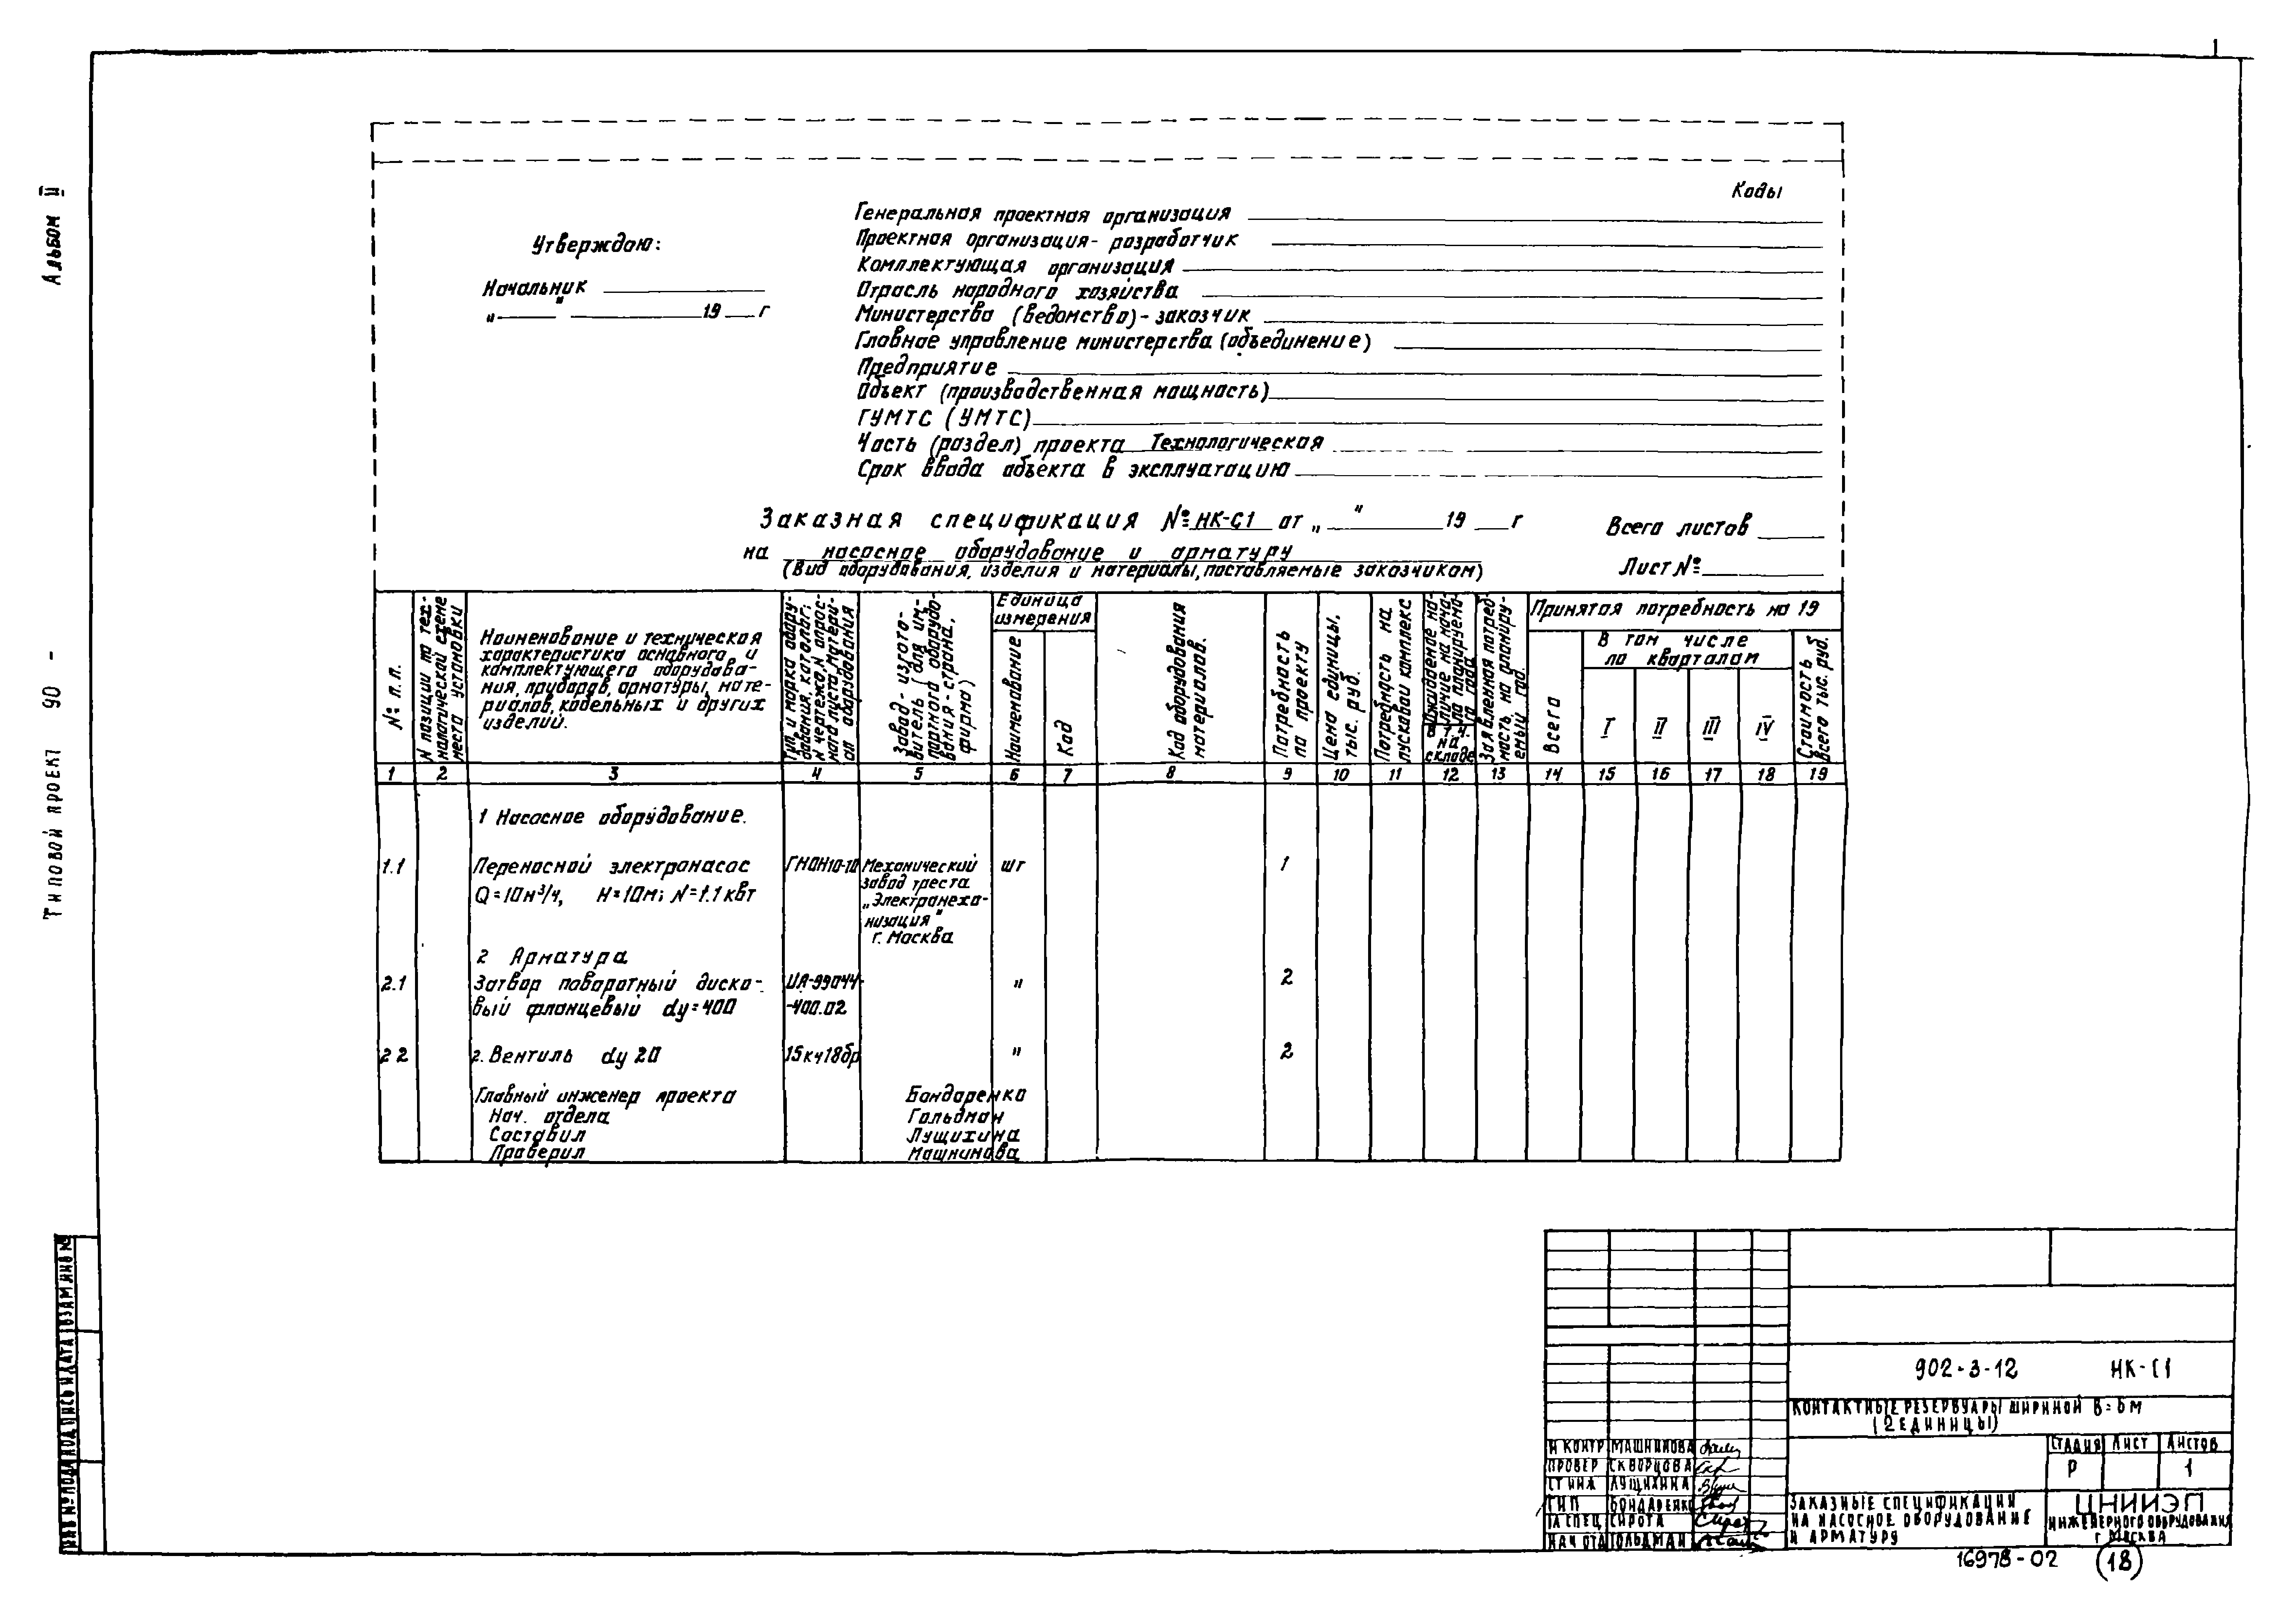 Альбом II
Типовой проект 90 -
Коды
Утверждаю:
Начальник
„ " 19 г
Генеральная проектная организация
Проектная организация- разработчик
Комплектующая организация
Отрасль народного хозяйства
Министерство (ведомство)- заказчик
Главное управление министерства (объединение)
Предприятие
Объект (производственная мощность)
ГУМТС (УМТС)
Часть (раздел) проекта Технологическая
Срок ввода объекта в эксплуатацию
Заказная спецификация № НК-С1 от „ " 19 г
Всего листов
на насосное оборудование и арматуру
(Вид оборудования, изделия и материалы, поставляемые заказчиком)
Лист №
№ п. п.
N позиции по тех-
нологической схеме
места установки
Наименование и техническая
характеристика основного и
комплектующего оборудова-
ния, приборов, арматуры, мате-
риалов, кабельных и других
изделий.
Тип и марка обору-
дования, каталог;
N чертежа, N опрос-
ного листа. Матери-
ал оборудования
Завод - изгото-
витель (для им-
портного оборудо-
вания - страна,
фирма)
Единица
измерения
Наименование
Код
Код оборудования
материалов.
Потребность
по проекту
Цена единицы,
тыс. руб.
Потребность на
пусковой комплекс
Ожидаемое на-
личие на нача-
ло планируемо-
го года
в т.ч.
на
складе
Заявленная потреб-
ность на планиру-
емый год.
Принятая потребность на 19
Всего
В том числе
по кварталам
I II III IV
Стоимость
всего тыс. руб.
1 2 3 4 5 6 7 8 9 10 11 12 13 14 15 16 17 18 19
1 Насосное оборудование.
1.1 Переносной электронасос ГНОМ10-10 Механический шт 1
завод треста
Q=10м³/ч, H=10м; N=1.1 квт „Электромеха-
низация"
г. Москва
2 Арматура
2.1 Затвор поворотный диско- ИА-99044- " 2
вый фланцевый dу=400 -400.02
2 2 2. Вентиль dу 20 15кч18бр " 2
Главный инженер проекта Бондаренко
Нач. отдела Гольдман
Составил Лущихина
Проверил Машнинова
902-3-12 НК-С1
КОНТАКТНЫЕ РЕЗЕРВУАРЫ ШИРИНОЙ В=6М
(2 ЕДИНИЦЫ)
Н КОНТР МАШНИНОВА
ПРОВЕР СКВОРЦОВА
СТ ИНЖ ЛУЩИХИНА
ГИП БОНДАРЕНКО
ГА СПЕЦ СИРОТА
НАЧ ОТД ГОЛЬДМАН
СТАДИЯ ЛИСТ ЛИСТОВ
Р 1
ЗАКАЗНЫЕ СПЕЦИФИКАЦИИ
НА НАСОСНОЕ ОБОРУДОВАНИЕ
И АРМАТУРУ
ЦНИИЭП
ИНЖЕНЕРНОГО ОБОРУДОВАНИЯ
Г МОСКВА
ИНВ № ПОДЛ ПОДПИСЬ И ДАТА ВЗАМ ИНВ №
16978-02 18